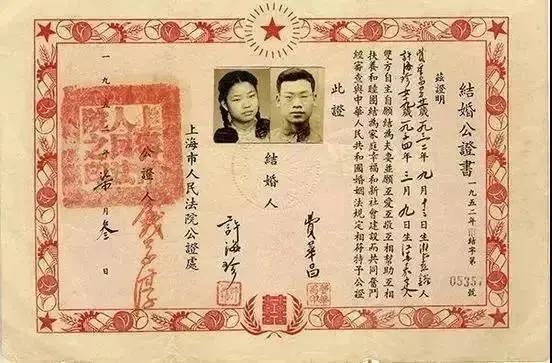 結婚公證書
一九五二年 結字第
號
茲證明
賈華昌 歲一九 年九月十三日生 人
許海珍 歲一九 四年三月九日生 人
雙方自主自願結為夫妻並願互愛互敬互相幫助互相
扶養和睦團結為家庭幸福和新社會建設而共同奮鬥
經審查與中華人民共和國婚姻法規定相符特予公證
此證
結婚人
賈華昌
許海珍
上海市人民法院公證處
公證人
一九五 年 柒月叁日
囍